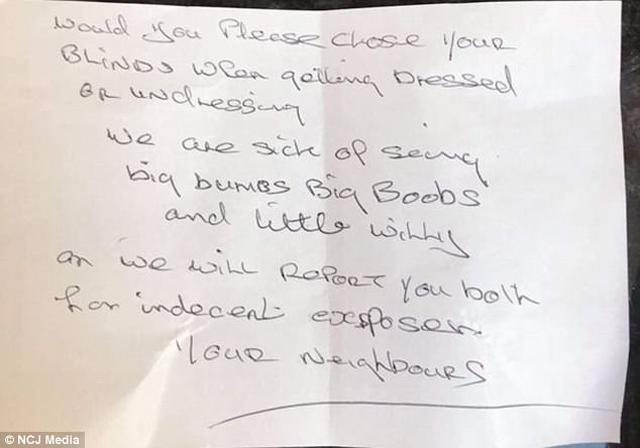 would you Please chose your
BLINDS when getting Dressed
OR undressing
we are sick of seing
big bumes Big Boobs
and little willy
or we will REPORT you both
for indecent exsposer.
YOUR NEIGHBOURS
© NCJ Media